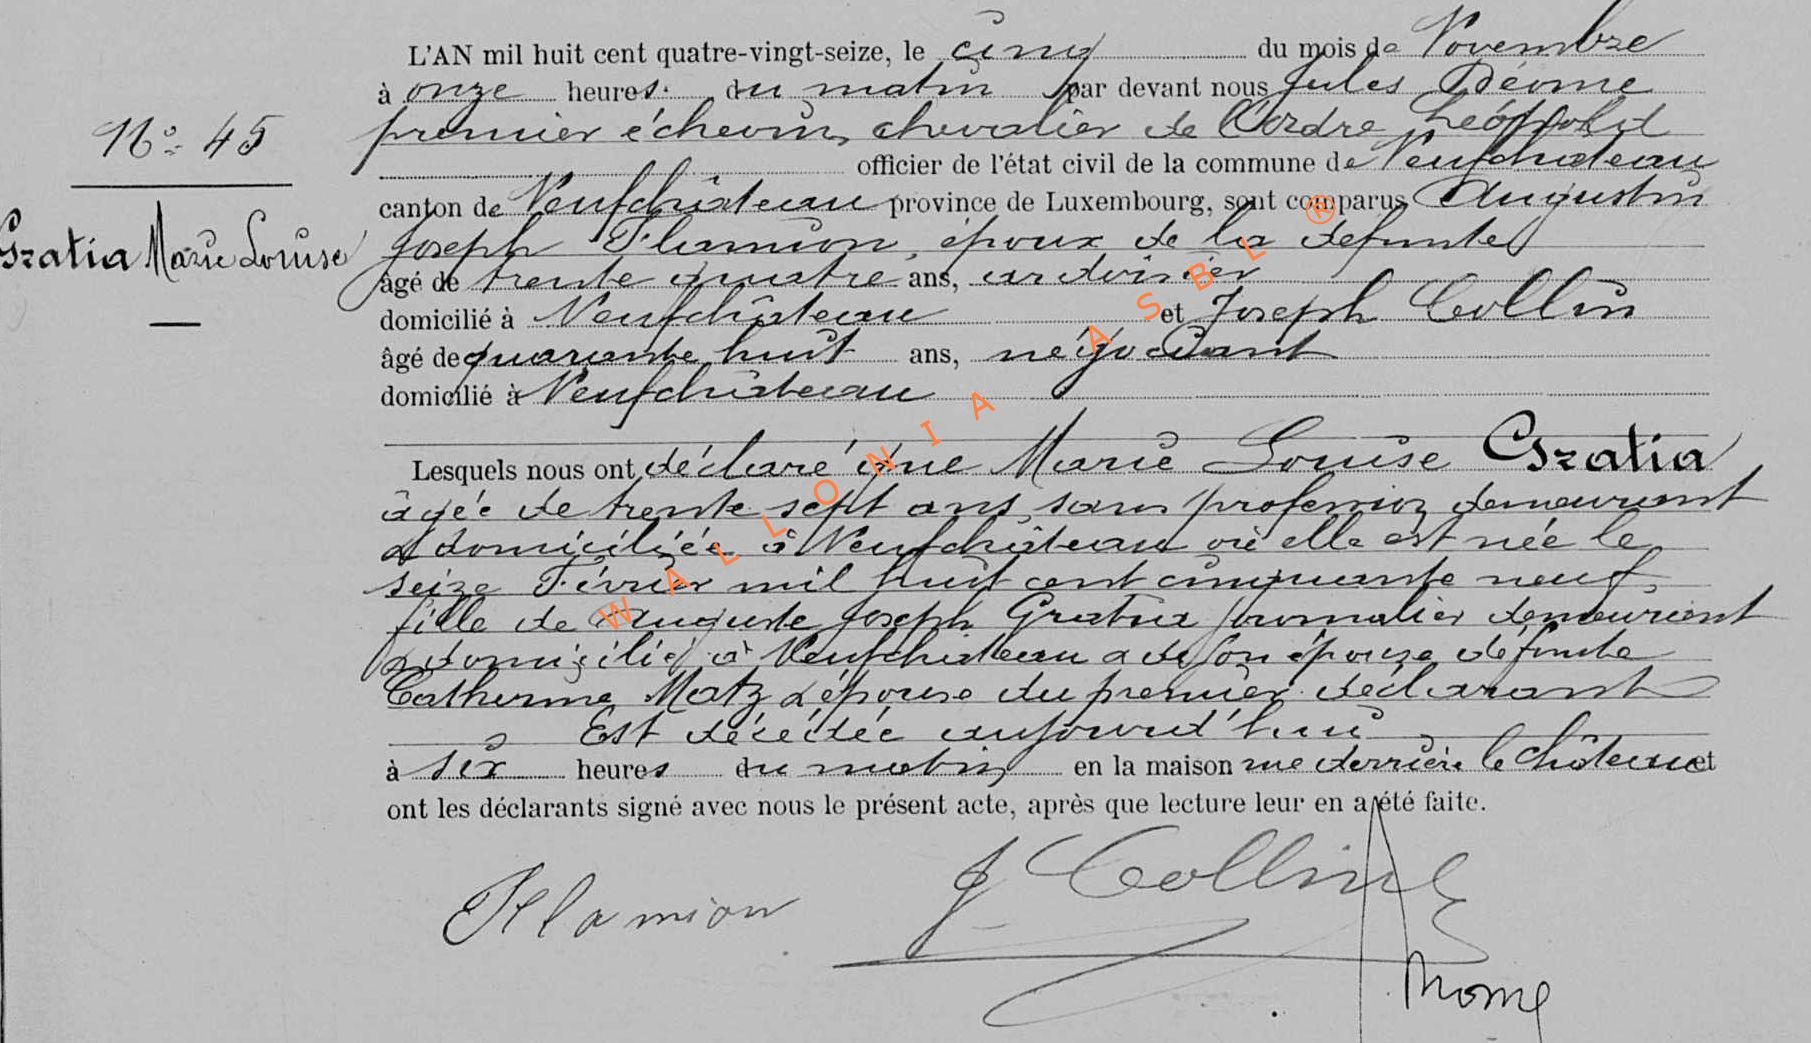 L'AN mil huit cent quatre-vingt-seize, le cinq du mois de Novembre
à onze heures du matin par devant nous Jules
premier échevin, chevalier de l'ordre Léopold
officier de l'état civil de la commune de Neufchâteau
canton de Neufchâteau province de Luxembourg, sont comparus Augustin
Joseph Flamion, époux de la défunte
âgé de trente quatre ans, ardoisier
domicilié à Neufchâteau et Joseph Collin
âgé de quarante huit ans, négociant
domicilié à Neufchâteau
N° 45
Gratia Marie Louise
Lesquels nous ont déclaré que Marie Louise Gratia
âgée de trente sept ans, sans profession demeurant
& domiciliée à Neufchâteau où elle est née le
seize Février mil huit cent cinquante neuf,
fille de Auguste Joseph Gratia journalier demeurant
& domicilié à Neufchâteau & de son épouse défunte
Catherine Matz & épouse du premier déclarant
Est décédée aujourd'hui
à six heures du matin en la maison rue derrière le château et
ont les déclarants signé avec nous le présent acte, après que lecture leur en a été faite.
Flamion J Collin
WALLONIA ASBL ®